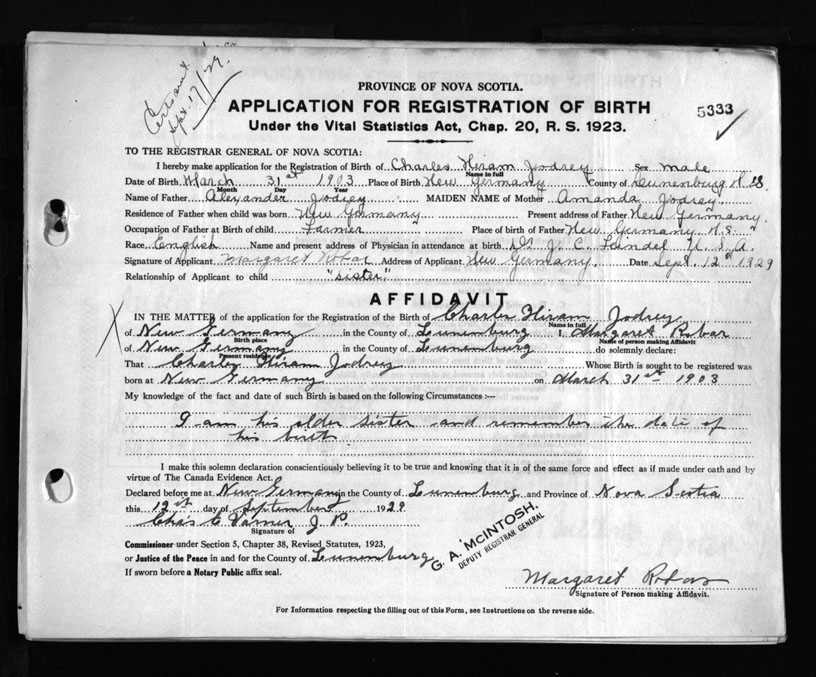 Cert sent
Sept. 17/29.
PROVINCE OF NOVA SCOTIA.
APPLICATION FOR REGISTRATION OF BIRTH
5333
Under the Vital Statistics Act, Chap. 20, R. S. 1923.
TO THE REGISTRAR GENERAL OF NOVA SCOTIA:
I hereby make application for the Registration of Birth of Charles Hiram Jodrey Sex male
Name in full
Date of Birth March 31st 1903 Place of Birth New Germany County of Lunenburg N.S
Month Day Year
Name of Father Alexander Jodrey MAIDEN NAME of Mother Amanda Jodrey
Residence of Father when child was born New Germany Present address of Father New Germany.
Occupation of Father at Birth of child Farmer Place of birth of Father New Germany N.S.
Race English Name and present address of Physician in attendance at birth Dr J. C. U. S. A.
Signature of Applicant Margaret Robar Address of Applicant New Germany. Date Sept. 12th 1929
Relationship of Applicant to child "sister"
AFFIDAVIT
IN THE MATTER of the application for the Registration of the Birth of Charles Hiram Jodrey
Name in full
of New Germany in the County of Lunenburg I, Margaret Robar
Birth place Name of person making Affidavit
of New Germany in the County of Lunenburg do solemnly declare:
Present residence
That Charles Hiram Jodrey Whose Birth is sought to be registered was
born at New Germany on March 31st 1903
My knowledge of the fact and date of such Birth is based on the following Circumstances :—
I am his older sister and remember the date of
his birth
I make this solemn declaration conscientiously believing it to be true and knowing that it is of the same force and effect as if made under oath and by
virtue of The Canada Evidence Act.
Declared before me at New Germany in the County of Lunenburg and Province of Nova Scotia
this 12th day of September 1929
Chas E Varner J. P.
Signature of
Commissioner under Section 5, Chapter 38, Revised Statutes, 1923,
or Justice of the Peace in and for the County of Lunenburg
If sworn before a Notary Public affix seal.
G. A. McINTOSH.
DEPUTY REGISTRAR GENERAL
Margaret Robar
Signature of Person making Affidavit.
For Information respecting the filling out of this Form, see Instructions on the reverse side.